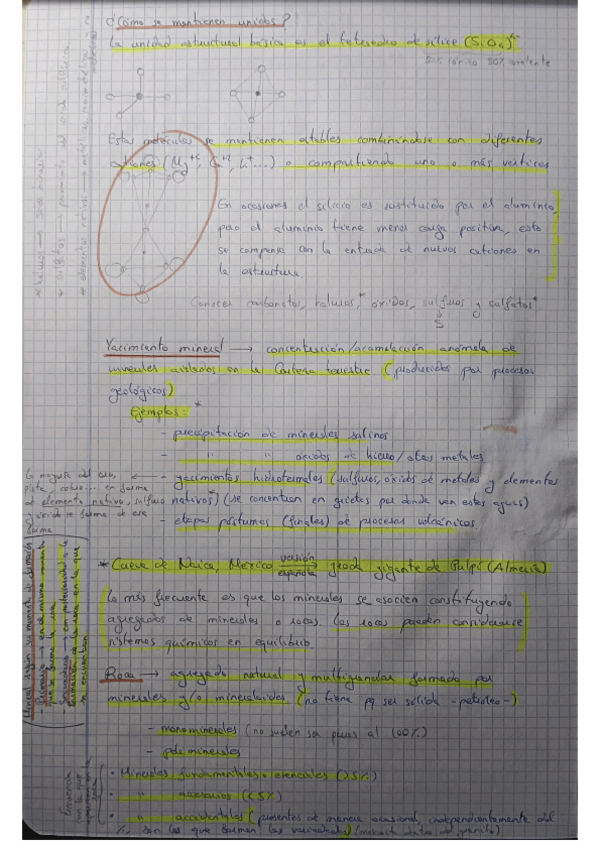 ¿Cómo se mantienen unidos?
La unidad estructural básica es el tetraedro de sílice (SiO4)
50% iónico 50% covalente
Estas moléculas se mantienen estables combinándose con diferentes
cationes (Mg+2, ...) o compartiendo uno o más vértices
En ocasiones el silicio es sustituido por el aluminio,
pero el aluminio tiene menor carga positiva, esto
se compensa con la entrada de nuevos cationes en
la estructura
Conocer carbonatos, haluros,* óxidos, sulfuros y sulfatos*
S
Yacimiento mineral → concentración/acumulación anómala de
minerales aislados en la Corteza terrestre (producidos por procesos
geológicos)
Ejemplos:*
- precipitación de minerales salinos
- " " óxidos de hierro/otros metales
- yacimientos hidrotermales (sulfuros, óxidos de metales y elementos
nativos*) (se concentran en grietas por donde van estas aguas)
- etapas póstumas (finales) de procesos volcánicos
La mayoría del oro,
plata, cobre... en forma
de elemento nativo, sulfuro
y óxido se forma de esa
forma
* Cueva de Naica, Mexico versión española → geoda gigante de Pulpí (Almería)
Lo más frecuente es que los minerales se asocien constituyendo
agregados de minerales o rocas. Las rocas pueden considerarse
sistemas químicos en equilibrio.
Roca → agregado natural y multigranular formado por
minerales y/o mineraloides (no tiene pq ser sólida -petróleo-)
- monominerales (no suelen ser puras al 100%)
- poliminerales
• Minerales fundamentales o esenciales (>5%)
• " accesorios (<5%)
• " accidentales (presentes de manera ocasional, independientemente del
%, son los que forman las variedades)
* haluros →
* sulfatos →
* elementos nativos →